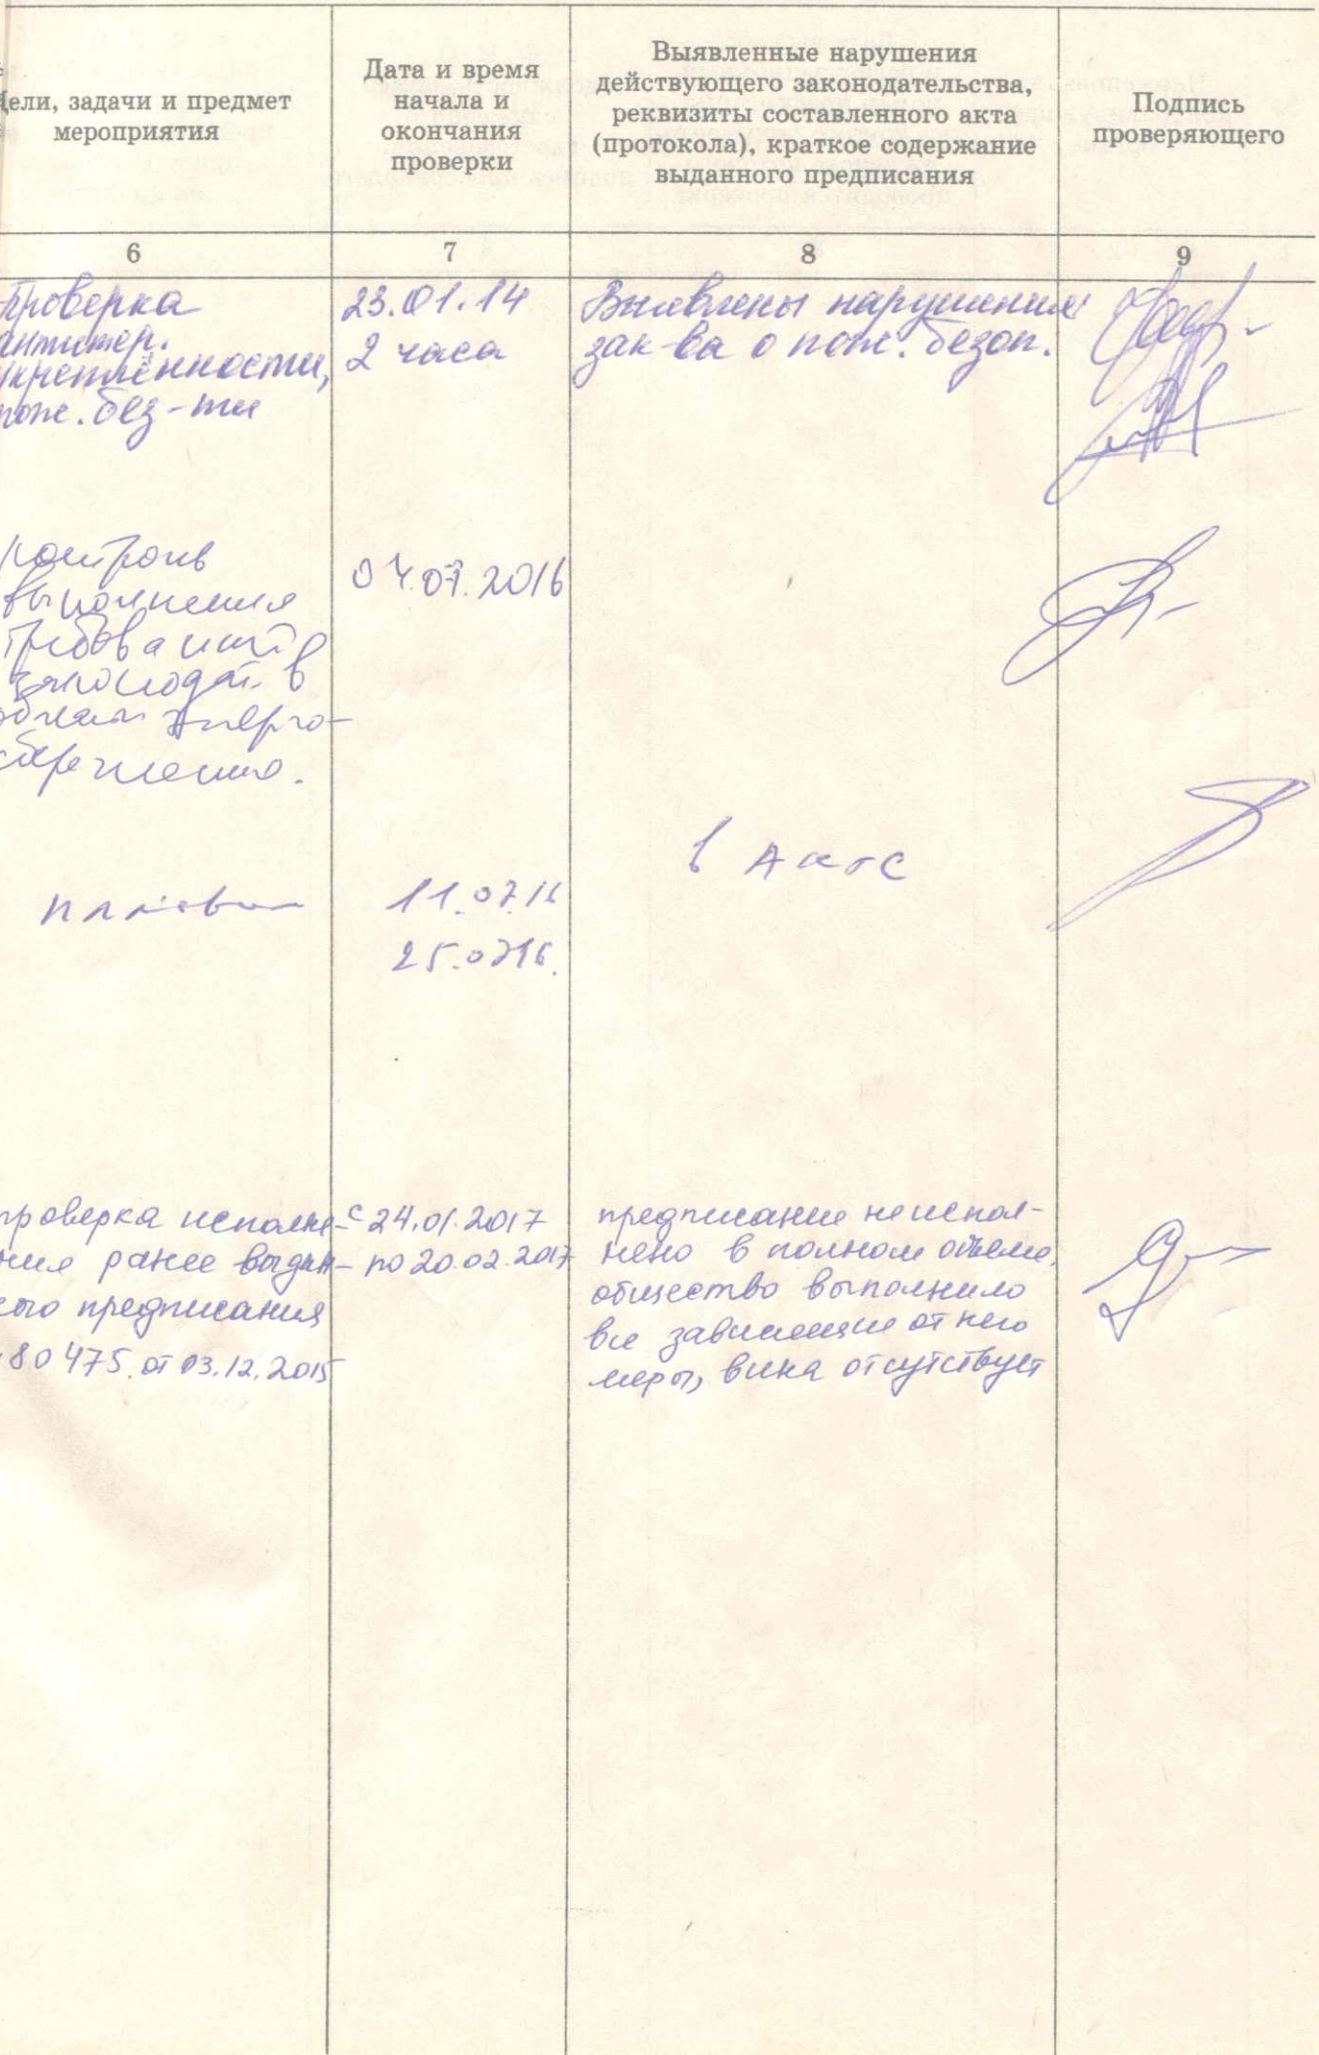 Цели, задачи и предмет
мероприятия
Дата и время
начала и
окончания
проверки
Выявленные нарушения
действующего законодательства,
реквизиты составленного акта
(протокола), краткое содержание
выданного предписания
Подпись
проверяющего
6
7
8
9
Проверка
антитер.
укреплённости,
пож. без-ти
23.01.14
2 часа
Выявлены нарушения
зак-ва о пож. безоп.
Контроль
выполнения
требований
законодат. в
области энерго-
сбережения.
04.07.2016
плановая
11.07.16
25.0716.
в Акте
проверка исполне-
ния ранее выдан-
ного предписания
80475 от 03.12.2015
с 24.01.2017
по 20.02.2017
предписание неиспол-
нено в полном объеме,
общество выполнило
все зависящие от него
меры, вина отсутствует